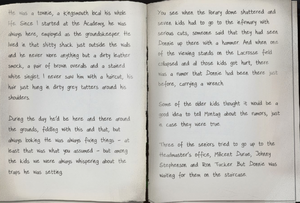 He was a townie, a Kingsmouth local his whole
life. Since I started at the Academy he was
always here, employed as the groundskeeper. He
lived in that shitty shack just outside the walls
and he never wore anything but a dirty leather
smock, a pair of brown overalls and a stained
white singlet. I never saw him with a haircut, his
hair just hung in dirty grey tatters around his
shoulders.
During the day he'd be here and there around
the grounds, fiddling with this and that, but
always looking. He was always fixing things - at
least that was what you assumed - but among
the kids we were always whispering about the
traps he was setting.
The one when the library dome shattered and
seven kids had to go to the infirmary with
serious cuts, someone said that they had seen
Donnie up there with a hammer. And when one
of the viewing stands on the Lacrosse field
collapsed and all those kids got hurt, there
was a rumor that Donnie had been there just
before, carrying a wrench.
Some of the older kids thought it would be a
good idea to tell Montag about the rumors, just
in case they were true.
Three of the seniors tried to go up to the
Headmaster's office, Millicent Duran, Johnny
Stephenson and Ron Tucker. But Donnie was
waiting for them on the staircase.